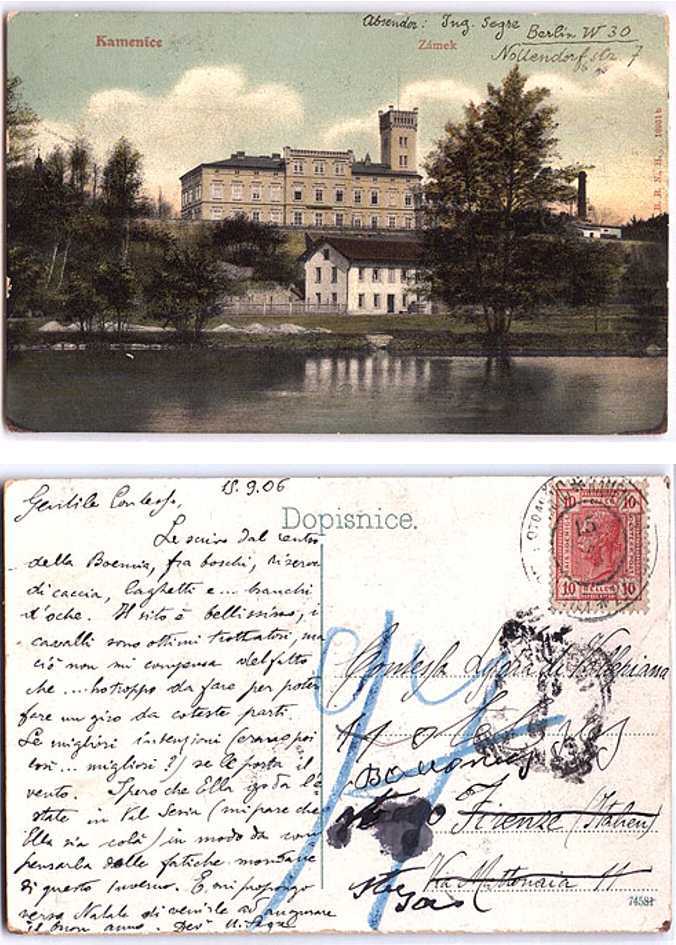 Absender: Ing. Segre
Kamenice
Zámek
Berlin W 30
Nollendorf str. 7
D. R. N. H. 10051 b
15.9.06
Gentile Contessa,
Dopisnice.
10 10
HELLER
10 10
Le scrivo dal centro
della Boemia, fra boschi, riserva
di caccia, laghetti e... branchi
d'oche. Il sito è bellissimo, i
cavalli sono ottimi trottatori, ma
ciò non mi compensa del fatto
che .... ho troppo da fare per poter
fare un giro da coteste parti.
Le migliori intenzioni (erano poi
così... migliori?) se le porta il
vento. Spero che Ella goda l'e
state in Val (mi pare che
Ella sia colà) in modo da com
pensarla delle fatiche mondane
di questo inverno. E mi propongo
verso Natale di venirle ad augurare
il buon anno. Dev. Segre
94
Contessa di
Firenze (Italien)
Via 11
74581